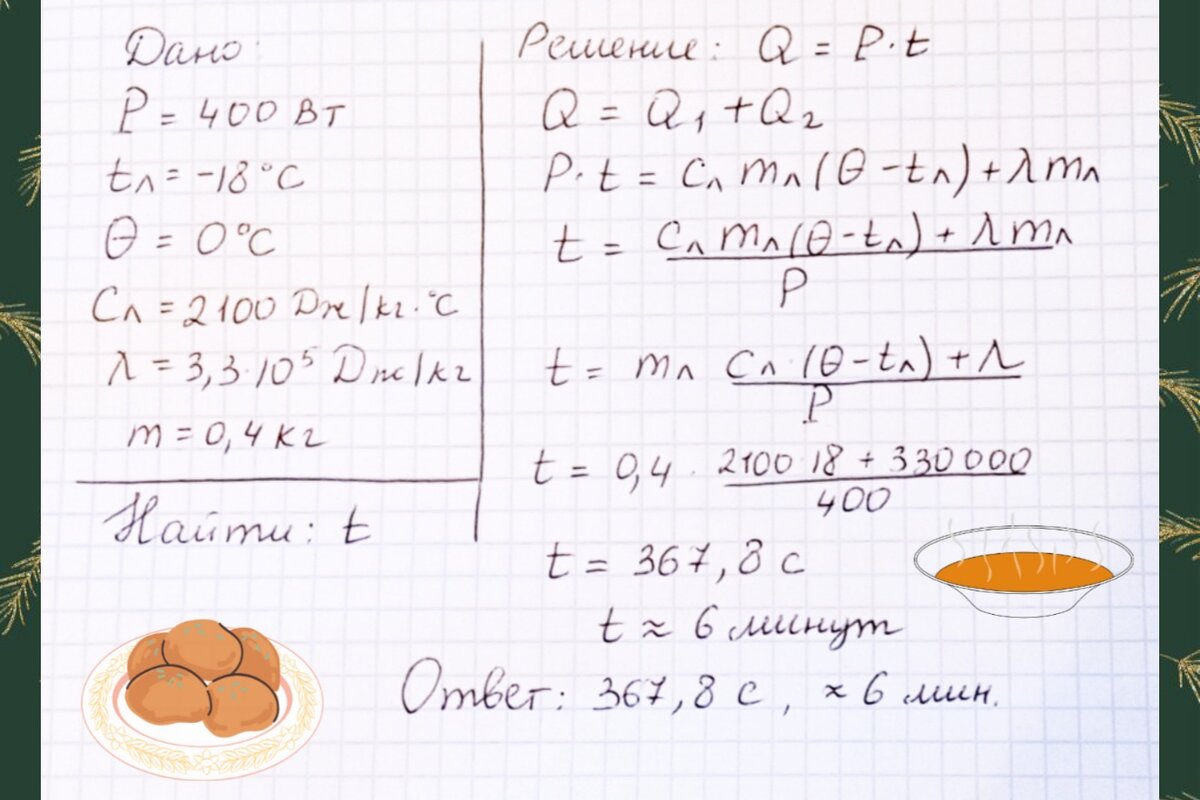 Дано:
P = 400 Вт
tл = -18°C
θ = 0°C
Cл = 2100 Дж/кг·°C
λ = 3,3·10⁵ Дж/кг
m = 0,4 кг
Найти: t
Решение: Q = P·t
Q = Q₁ + Q₂
P·t = Cл mл (θ - tл) + λ mл
t = Cл mл (θ - tл) + λ mл
P
t = mл Cл · (θ - tл) + λ
P
t = 0,4 · 2100·18 + 330 000
400
t = 367,8 c
t ≈ 6 минут
Ответ: 367,8 c, ≈ 6 мин.